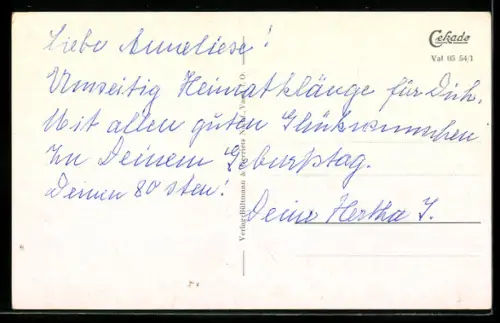 Cekade
Val 05 54/1
Liebe Anneliese!
Umseitig Heimatklänge für Dich.
Mit allen guten Glückwünschen
zu Deinem Geburtstag.
Deinen 80sten!
Deine Hertha J.
Verlag: Bültmann & Gerriets